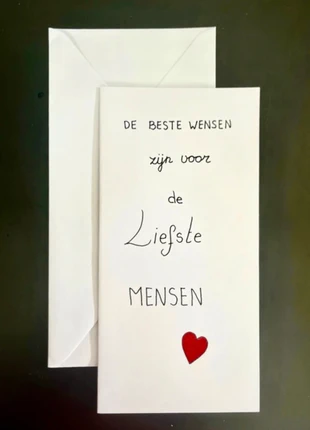 DE BESTE WENSEN
zijn voor
de
Liefste
MENSEN